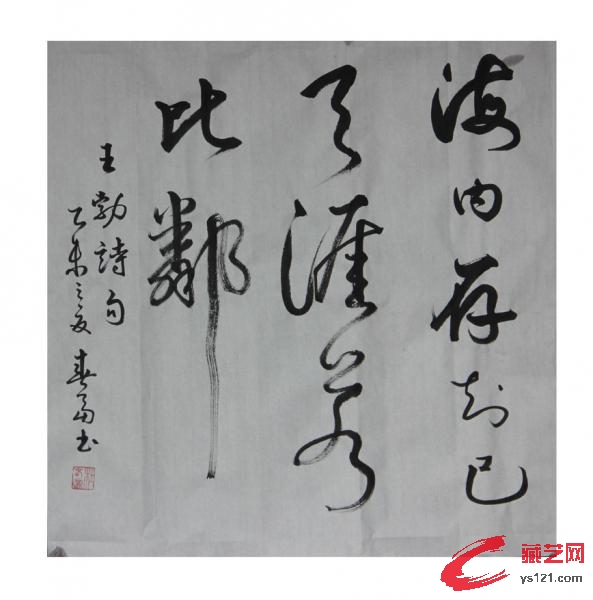 海内存知己
天涯若
比鄰
王勃詩句
乙未之夏 春富书
藏艺网
ys121.com